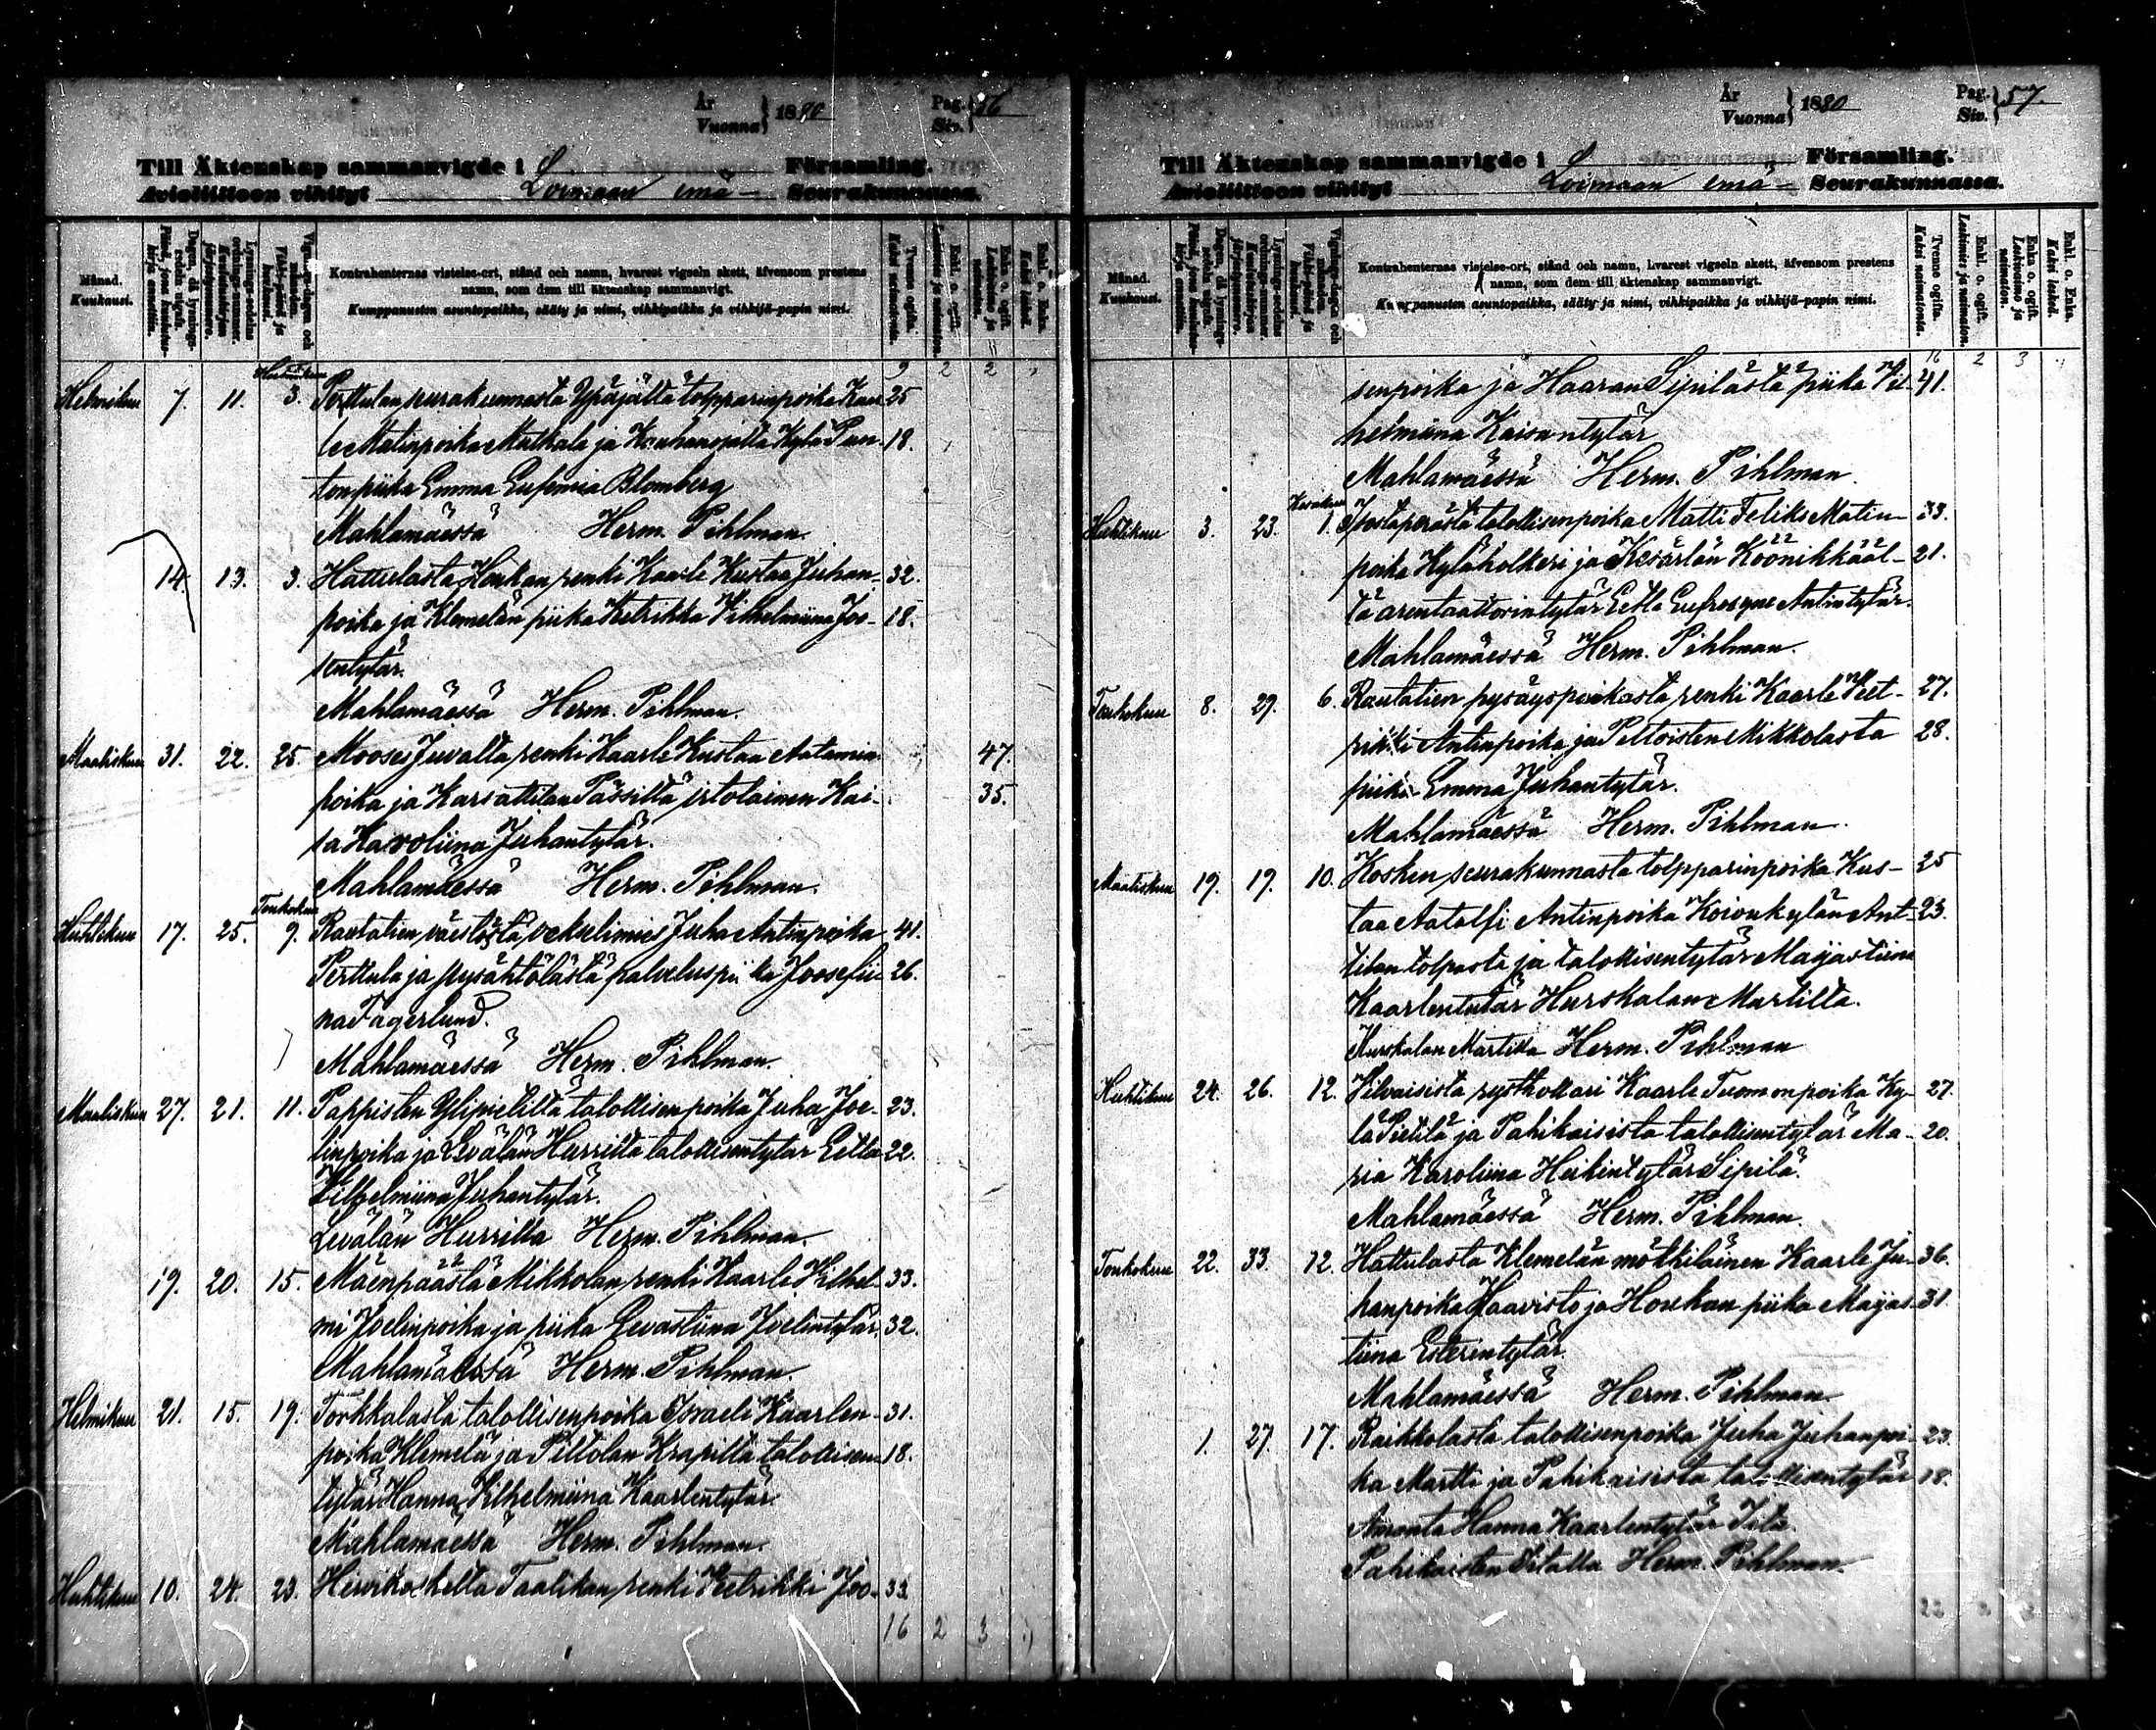 År
Vuonna } 1880 Pag. Siv. } 56
Till Äktenskap sammanvigde i L Församling.
Avioliittoon vihityt Loimaan emä- Seurakunnassa.
Månad. Kuukausi.
Kontrahenternas vistelse-ort, stånd och namn, hvarest vigseln skett, äfvensom prestens
namn, som dem till äktenskap sammanvigt.
Kumppanusten asuntopaikka, sääty ja nimi, vihkipaikka ja vihkijä-papin nimi.
9 2 2
Helmikuu 7. 11. 3. Perttulan seurakunnasta Ypäjältä torpparinpoika Kaar- 25
le Matinpoika Mattala ja Kauhanojalta Kylä Pun- 18.
ton piika Emma Eufemia Blomberg
Mahlamäessä Herm. Pihlman.
14. 13. 3. Hattulasta Houkan renki Kaarle Kustaa Juhan- 32.
poika ja Klemelän piika Retrikka Vilhelmiina Joo- 18.
sentytär.
Mahlamäessä Herm. Pihlman.
Maaliskuu 31. 22. 25. Mooses Juvalta renki Kaarle Kustaa Aatamin 47.
poika ja Karsattilan Passilta irtolainen Kai- 35.
sa Karoliina Juhantytär.
Mahlamäessä Herm. Pihlman.
Toukokuu
Huhtikuu 17. 25. 9. Rautatien väestöstä vekselimies Juha Antinpoika 41.
Perttula ja pysähtölästä palveluspiika Joosefii- 26.
na Fagerlund.
Mahlamäessä Herm. Pihlman.
Maaliskuu 27. 21. 11. Pappisten Ylipietiltä talollisen poika Juha Joe- 23.
linpoika ja Levälän Hurrilta talollisentytär Eetla 22.
Vilhelmiina Juhantytär.
Levälän Hurrilla Herm. Pihlman.
19. 20. 15. Mäenpäästä Mikkolan renki Kaarle Vilhel- 33.
mi Joelinpoika ja piika Eevastiina Joelintytär 32.
Mahlamäessä Herm. Pihlman.
Helmikuu 21. 15. 19. Torkkalasta talollisenpoika Israeli Kaarlen- 31.
poika Klemelä ja Peltolan Krapilta talollisen 18.
tytär Hanna Vilhelmiina Kaarlentytär
Mahlamäessä Herm. Pihlman.
Huhtikuu 10. 24. 23. Hirvikoskelta Taalikan renki Retrikki Joo- 33.
16 2 3
År
Vuonna } 1880 Pag. Siv. } 57.
Till Äktenskap sammanvigde i L Församling.
Avioliittoon vihityt Loimaan emä- Seurakunnassa.
Månad. Kuukausi.
Kontrahenternas vistelse-ort, stånd och namn, hvarest vigseln skett, äfvensom prestens
namn, som dem till äktenskap sammanvigt.
Kumppanusten asuntopaikka, sääty ja nimi, vihkipaikka ja vihkijä-papin nimi.
16 2 3
senpoika ja Haaran Sipilästä piika Vil- 41.
helmiina Kaisantytär
Mahlamäessä Herm. Pihlman.
Kesäkuu
Huhtikuu 3. 23. 1. talollisenpoika Matti Feliks Matin- 33.
poika Kyläholkeri ja Kesärlän Köönikkääl- 21.
tä arentaattorintytär Eetla Eufrosyne Antintytär.
Mahlamäessä Herm. Pihlman.
Toukokuu 8. 29. 6. Rautatien pysäyspaikasta renki Kaarle Veet- 27.
rikki Antinpoika ja Peltoisten Mikkolasta 28.
piika Emma Juhantytär.
Mahlamäessä Herm. Pihlman.
Maaliskuu 19. 19. 10. Kosken seurakunnasta torpparinpoika Kus- 25
taa Aatolfi Antinpoika Koivukylän Ant- 23.
tilan torpasta ja talollisentytär Maijastiina
Kaarlentytär Hurskalan Martilta.
Hurskalan Martilla Herm. Pihlman
Huhtikuu 24. 26. 12. Vilvaisista rysthollari Kaarle Tuomonpoika Ky- 27.
lä Pietilä ja Pahikaisista talollisentytär Ma- 20.
ria Karoliina Heikintytär Sipilä.
Mahlamäessä Herm. Pihlman.
Toukokuu 22. 33. 12. Hattulasta Klemelän mökkiläinen Kaarle Ju- 36.
hanpoika Haavisto ja Houkan piika Maijas- 31.
tiina Esterintytär.
Mahlamäessä Herm. Pihlman
1. 27. 17. Raikkolasta talollisenpoika Juha Juhanpoi- 23.
ka Martti ja Pahikaisista talollisentytär 18.
Amanta Hanna Kaarlentytär Iitä.
Pahikaisten Iitalla Herm. Pihlman.
22